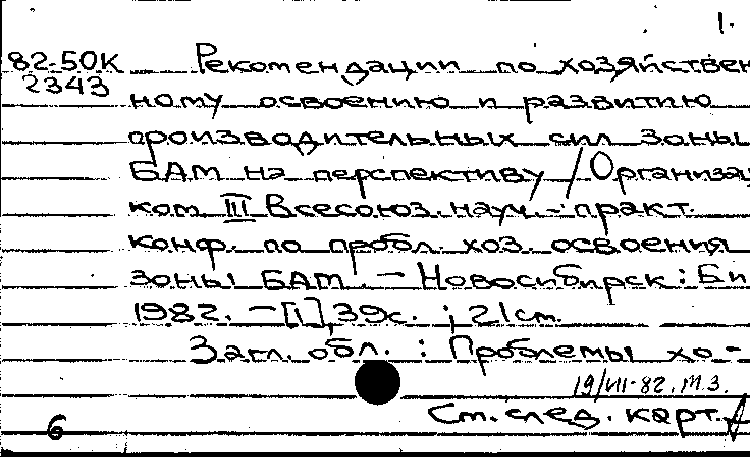 1.
82-50К Рекомендации по хозяйствен
2343 ному освоению и развитию
производительных сил зоны
БАМ на перспективу / Организац
ком. III Всесоюз. науч.-практ.
конф. по пробл. хоз. освоения
зоны БАМ. - Новосибирск: Би
1982. - [1], 39с. ; 21см.
Загл. обл. : Проблемы хо-
19/VII-82. М.З.
См. след. карт.
6